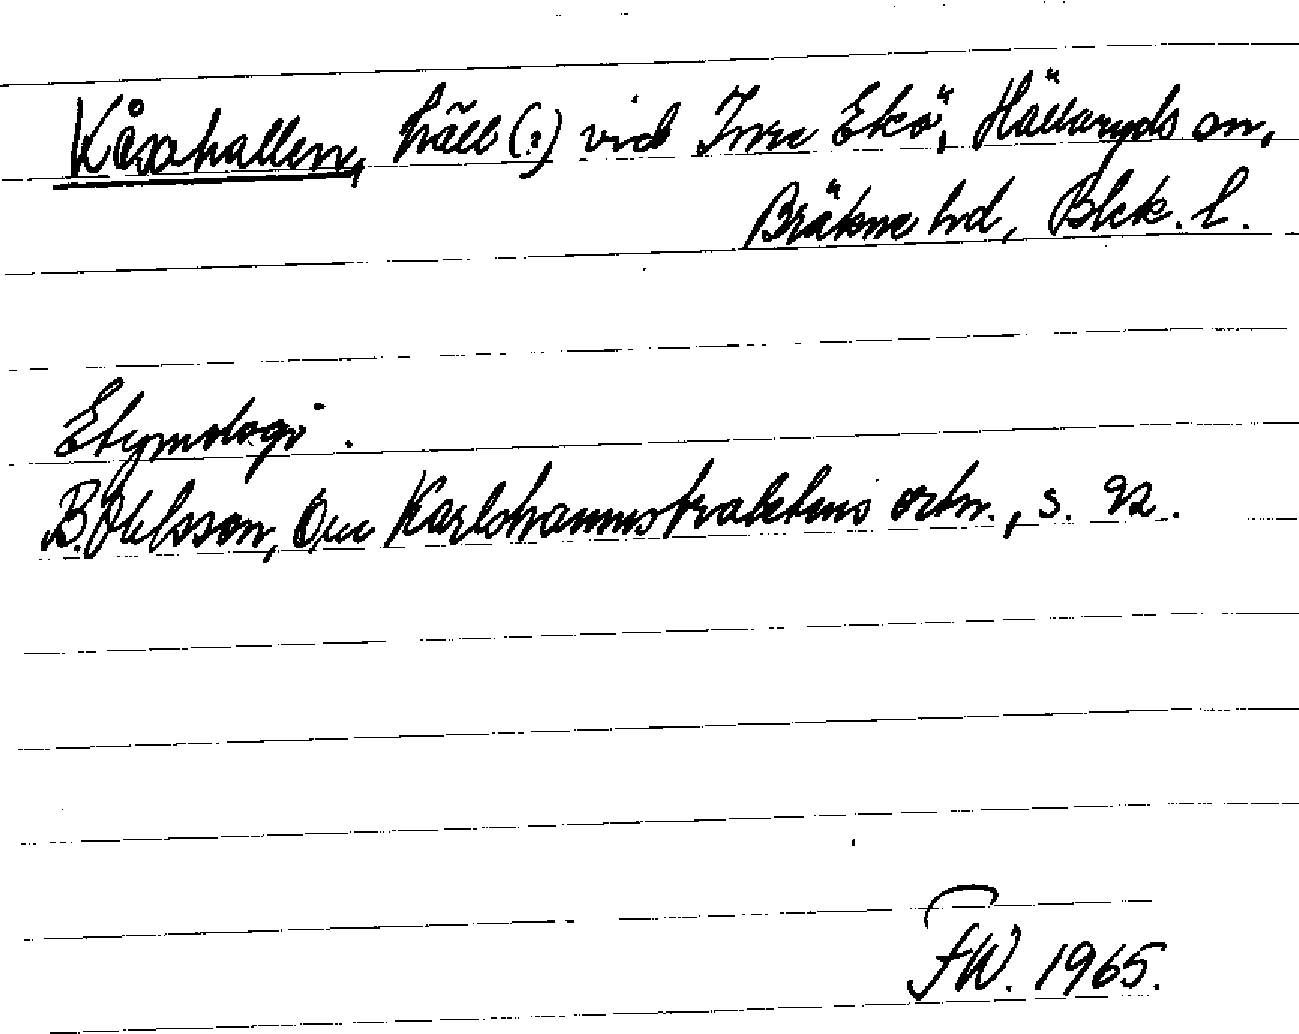 Kåsahallen, häll (?) vid Inre Ekö, Hällaryds sn,
Bräkne hd, Blek. l.
Etymologi.
B. Ohlsson, Om Karlshamnstraktens ortn., s. 92.
FW. 1965.